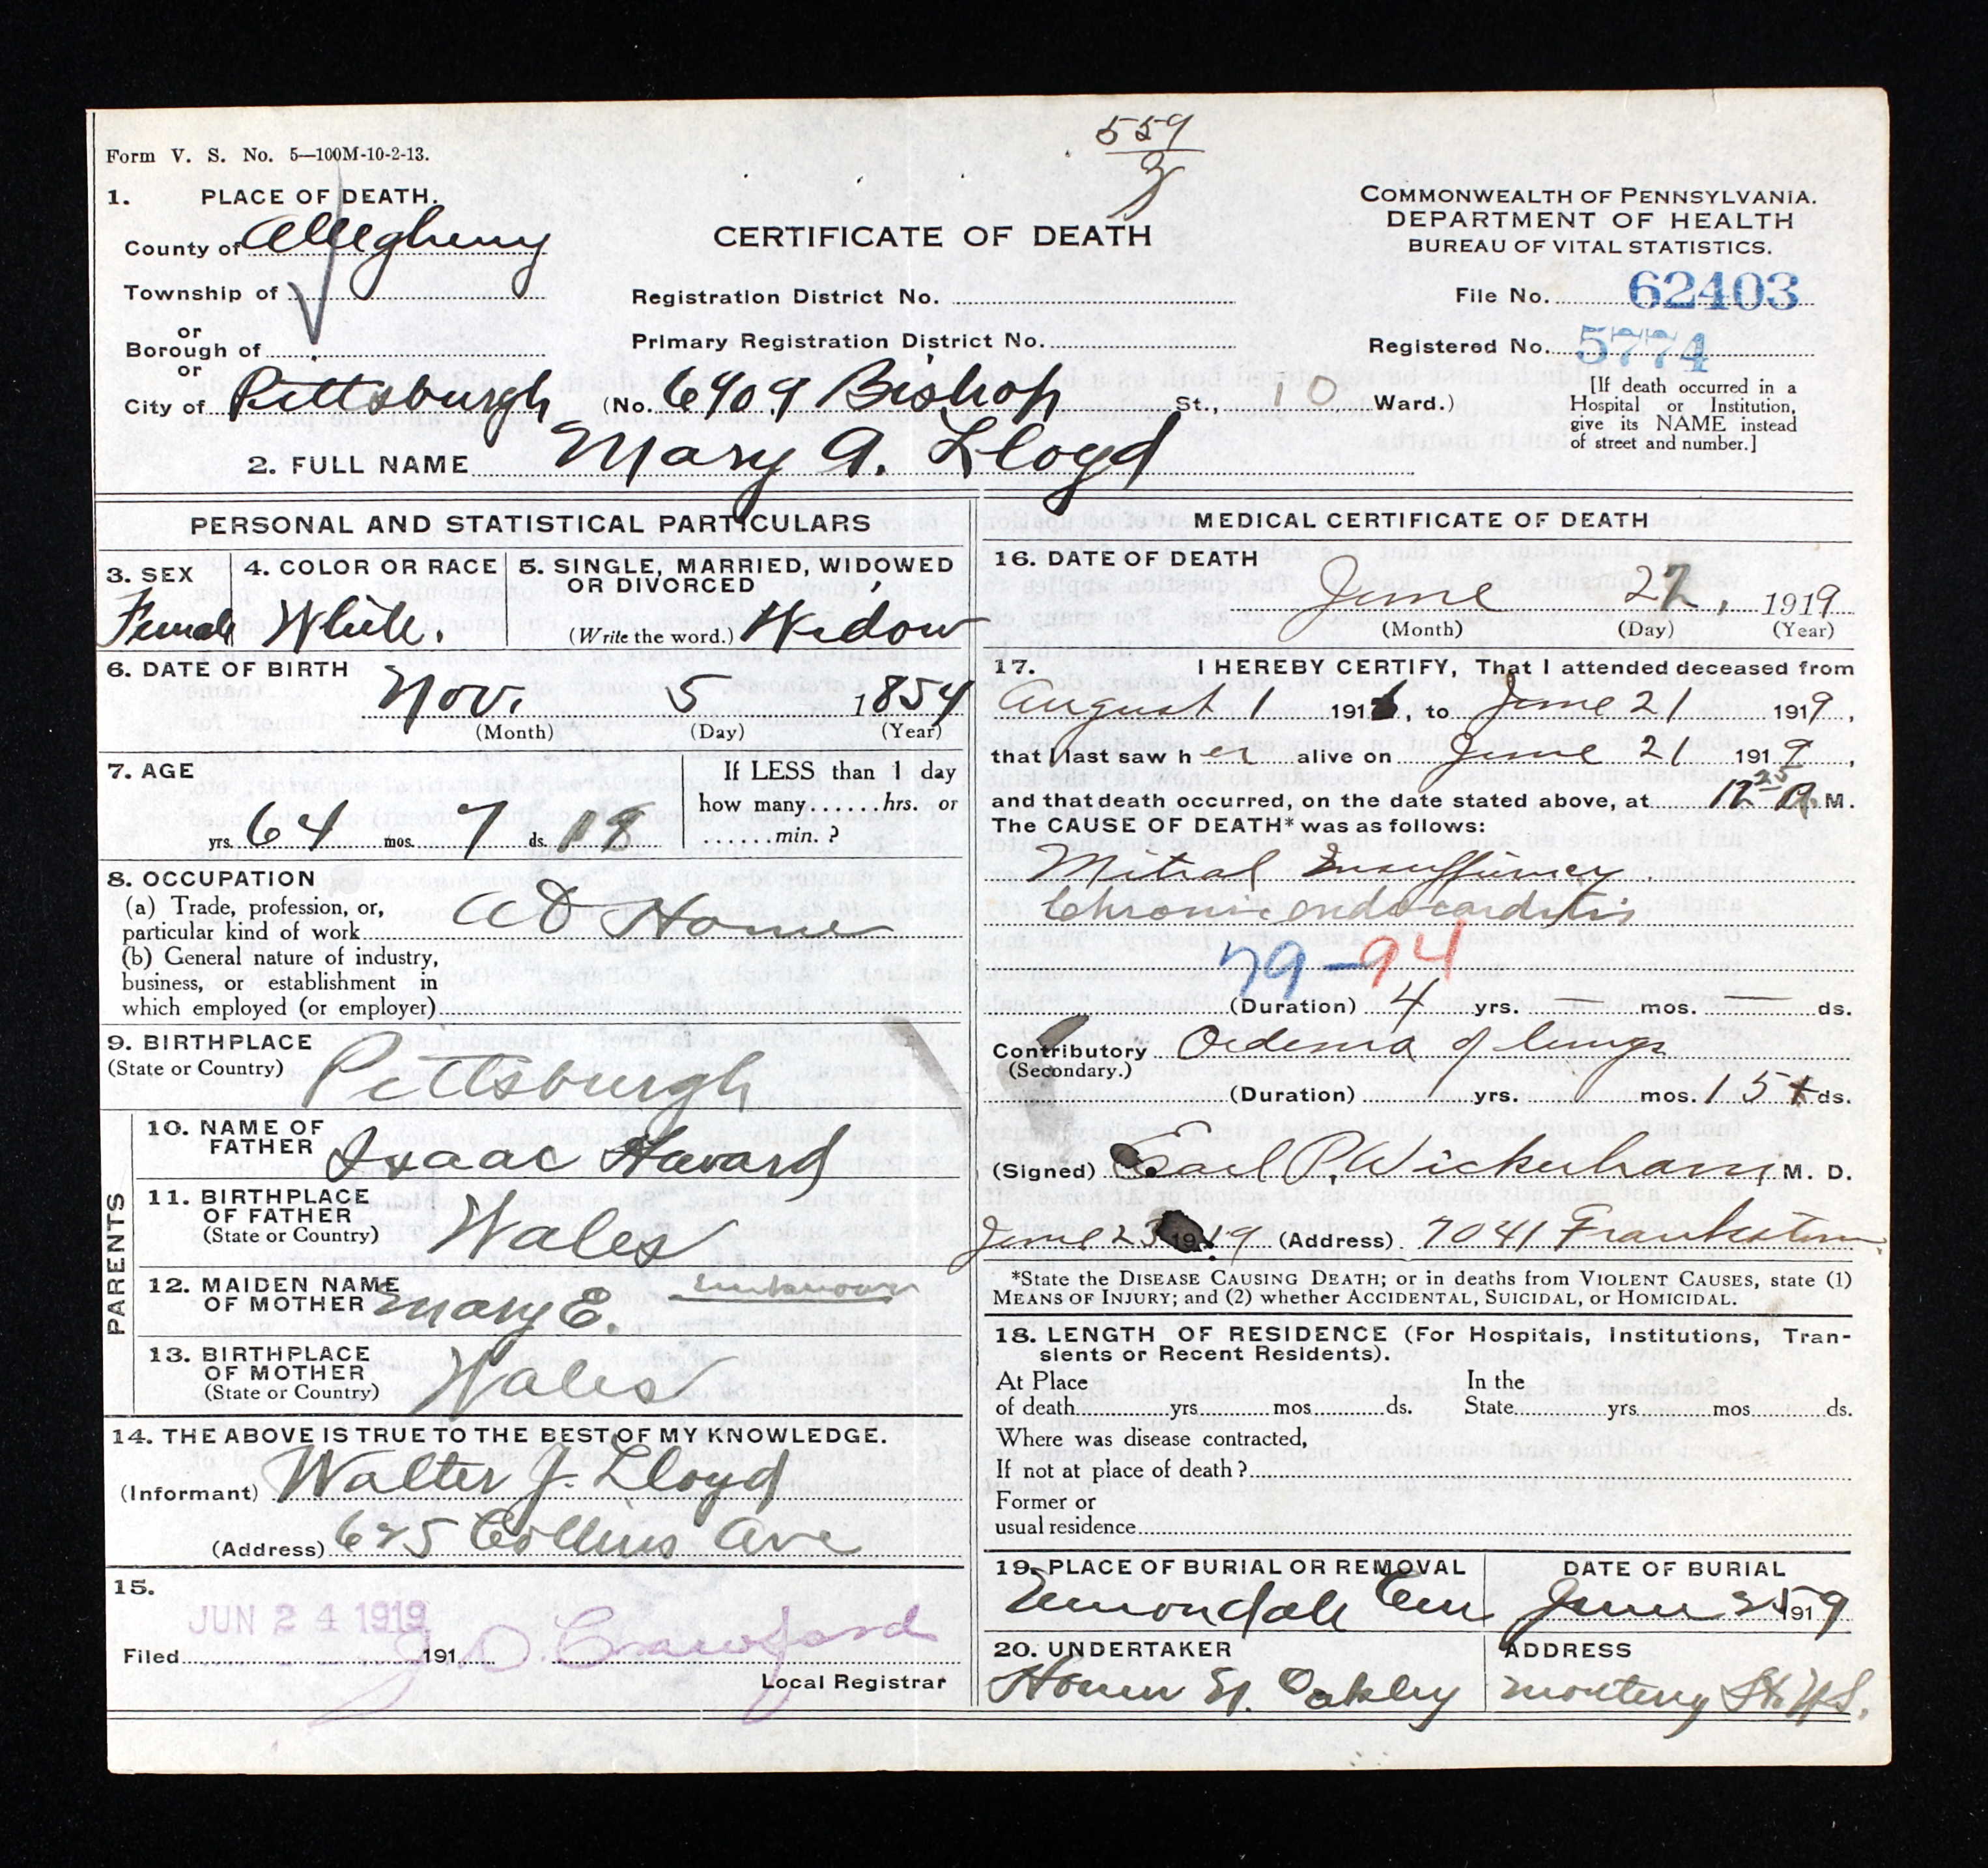 559
3
Form V. S. No. 5—100M-10-2-13.
1. PLACE OF DEATH.
County of Allegheny
Township of
or
Borough of
or
City of Pittsburgh (No. 6909 Bishop St., 10 Ward.)
CERTIFICATE OF DEATH
Registration District No.
Primary Registration District No.
COMMONWEALTH OF PENNSYLVANIA.
DEPARTMENT OF HEALTH
BUREAU OF VITAL STATISTICS.
File No. 62403
Registered No. 5774
[If death occurred in a
Hospital or Institution,
give its NAME instead
of street and number.]
2. FULL NAME Mary A. Lloyd
PERSONAL AND STATISTICAL PARTICULARS
3. SEX
Female
4. COLOR OR RACE
White.
5. SINGLE, MARRIED, WIDOWED
OR DIVORCED
(Write the word.) Widow
6. DATE OF BIRTH
Nov. 5 1854
(Month) (Day) (Year)
7. AGE
yrs. 64 mos. 7 ds. 18
If LESS than 1 day
how many......hrs. or
......min. ?
8. OCCUPATION
(a) Trade, profession, or,
particular kind of work At Home
(b) General nature of industry,
business, or establishment in
which employed (or employer)
9. BIRTHPLACE
(State or Country) Pittsburgh
PARENTS
10. NAME OF
FATHER Isaac Havard
11. BIRTHPLACE
OF FATHER
(State or Country) Wales
12. MAIDEN NAME
OF MOTHER Mary E. unknown
13. BIRTHPLACE
OF MOTHER
(State or Country) Wales
14. THE ABOVE IS TRUE TO THE BEST OF MY KNOWLEDGE.
(Informant) Walter J. Lloyd
(Address) 625 Collins Ave
15.
JUN 24 1919
Filed 191 J. O. Crawford
Local Registrar
MEDICAL CERTIFICATE OF DEATH
16. DATE OF DEATH
June 22, 1919
(Month) (Day) (Year)
17. I HEREBY CERTIFY, That I attended deceased from
August 1 191 , to June 21 1919,
that I last saw h er alive on June 21 1919,
and that death occurred, on the date stated above, at 12 25 A. M.
The CAUSE OF DEATH* was as follows:
Mitral Insufficiency
Chronic endocarditis
79-94
(Duration) 4 yrs. — mos. — ds.
Contributory Oedema of lungs
(Secondary.)
(Duration) yrs. mos. 15 ds.
(Signed) Earl P. Wickerham, M. D.
June 23 1919 (Address) 7041 Frankstown
*State the DISEASE CAUSING DEATH; or in deaths from VIOLENT CAUSES, state (1)
MEANS OF INJURY; and (2) whether ACCIDENTAL, SUICIDAL, or HOMICIDAL.
18. LENGTH OF RESIDENCE (For Hospitals, Institutions, Tran-
sients or Recent Residents).
At Place In the
of death yrs. mos. ds. State yrs. mos. ds.
Where was disease contracted,
If not at place of death?
Former or
usual residence
19. PLACE OF BURIAL OR REMOVAL
Cem
DATE OF BURIAL
June 25 1919
20. UNDERTAKER
Oakley
ADDRESS
St. N.S.